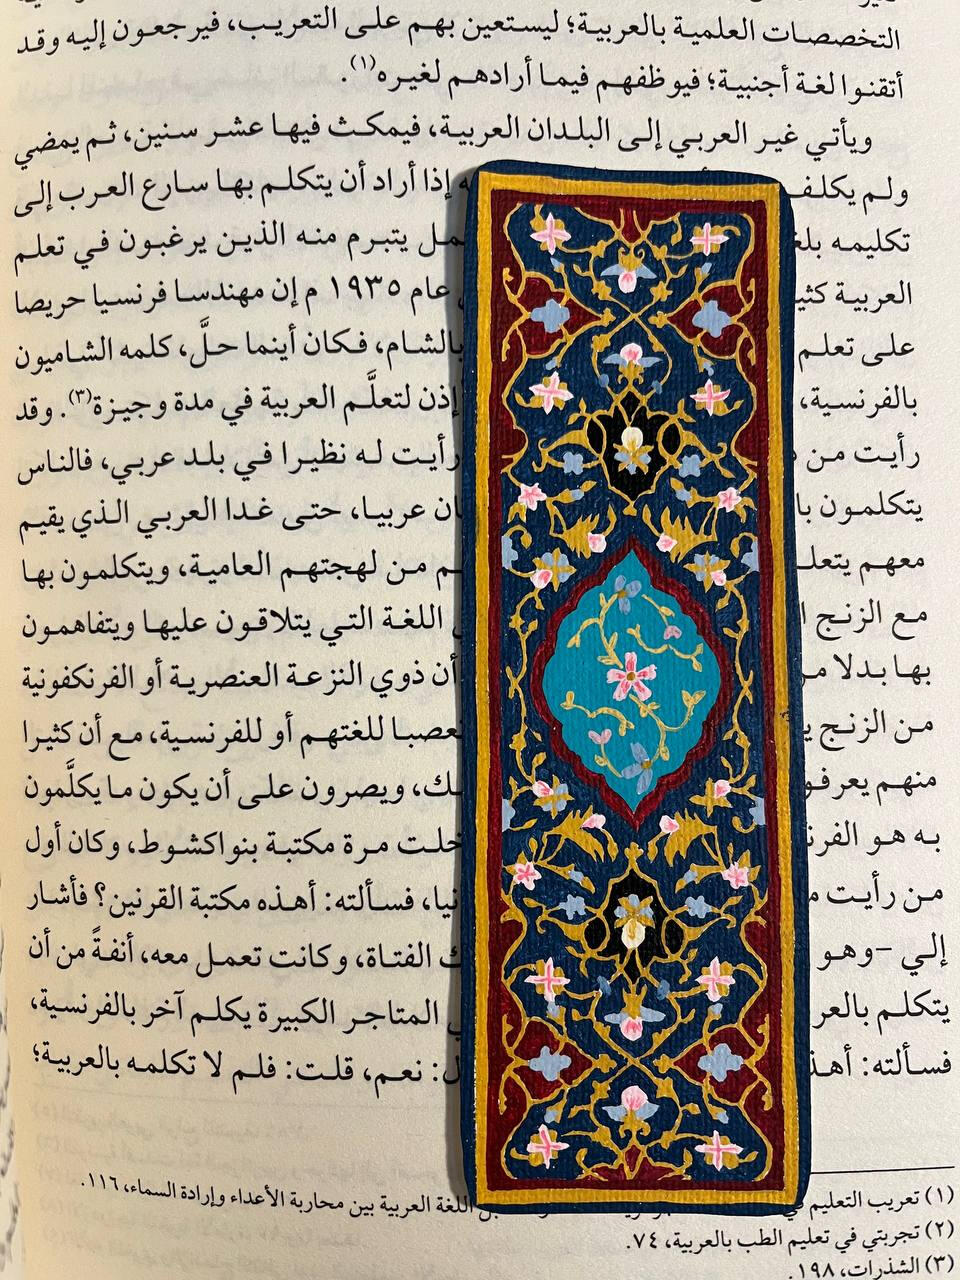 التخصصات العلمية بالعربية؛ ليستعين بهم على التعريب، فيرجعون إليه وقد
أتقنوا لغة أجنبية؛ فيوظفهم فيما أرادهم لغيره(١).
ويأتي غير العربي إلى البلدان العربية، فيمكث فيها عشر سنين، ثم يمضي
ولم يكلف إذا أراد أن يتكلم بها سارع العرب إلى
تكليمه يتبرم منه الذين يرغبون في تعلم
العربية عام ١٩٣٥ م إن مهندسا فرنسيا حريصا
على تعلم بالشام، فكان أينما حلَّ، كلمه الشاميون
بالفرنسية، إذن لتعلَّم العربية في مدة وجيزة(٣). وقد
رأيت من رأيت له نظيرا في بلد عربي، فالناس
يتكلمون عربيا، حتى غدا العربي الذي يقيم
معهم من لهجتهم العامية، ويتكلمون بها
مع الزنج اللغة التي يتلاقون عليها ويتفاهمون
بها بدلا أن ذوي النزعة العنصرية أو الفرنكفونية
من الزنج للغتهم أو للفرنسية، مع أن كثيرا
منهم ويصرون على أن يكون ما يكلَّمون
به هو مرة مكتبة بنواكشوط، وكان أول
من رأيت فسألته: أهذه مكتبة القرنين؟ فأشار
إلي -وهو الفتاة، وكانت تعمل معه، أنفةً من أن
يتكلم المتاجر الكبيرة يكلم آخر بالفرنسية،
فسألته: نعم، قلت: فلم لا تكلمه بالعربية؛
(١) تعريب التعليم اللغة العربية بين محاربة الأعداء وإرادة السماء، ١١٦.
(٢) تجربتي في تعليم الطب بالعربية، ٧٤.
(٣) الشذرات، ١٩٨.